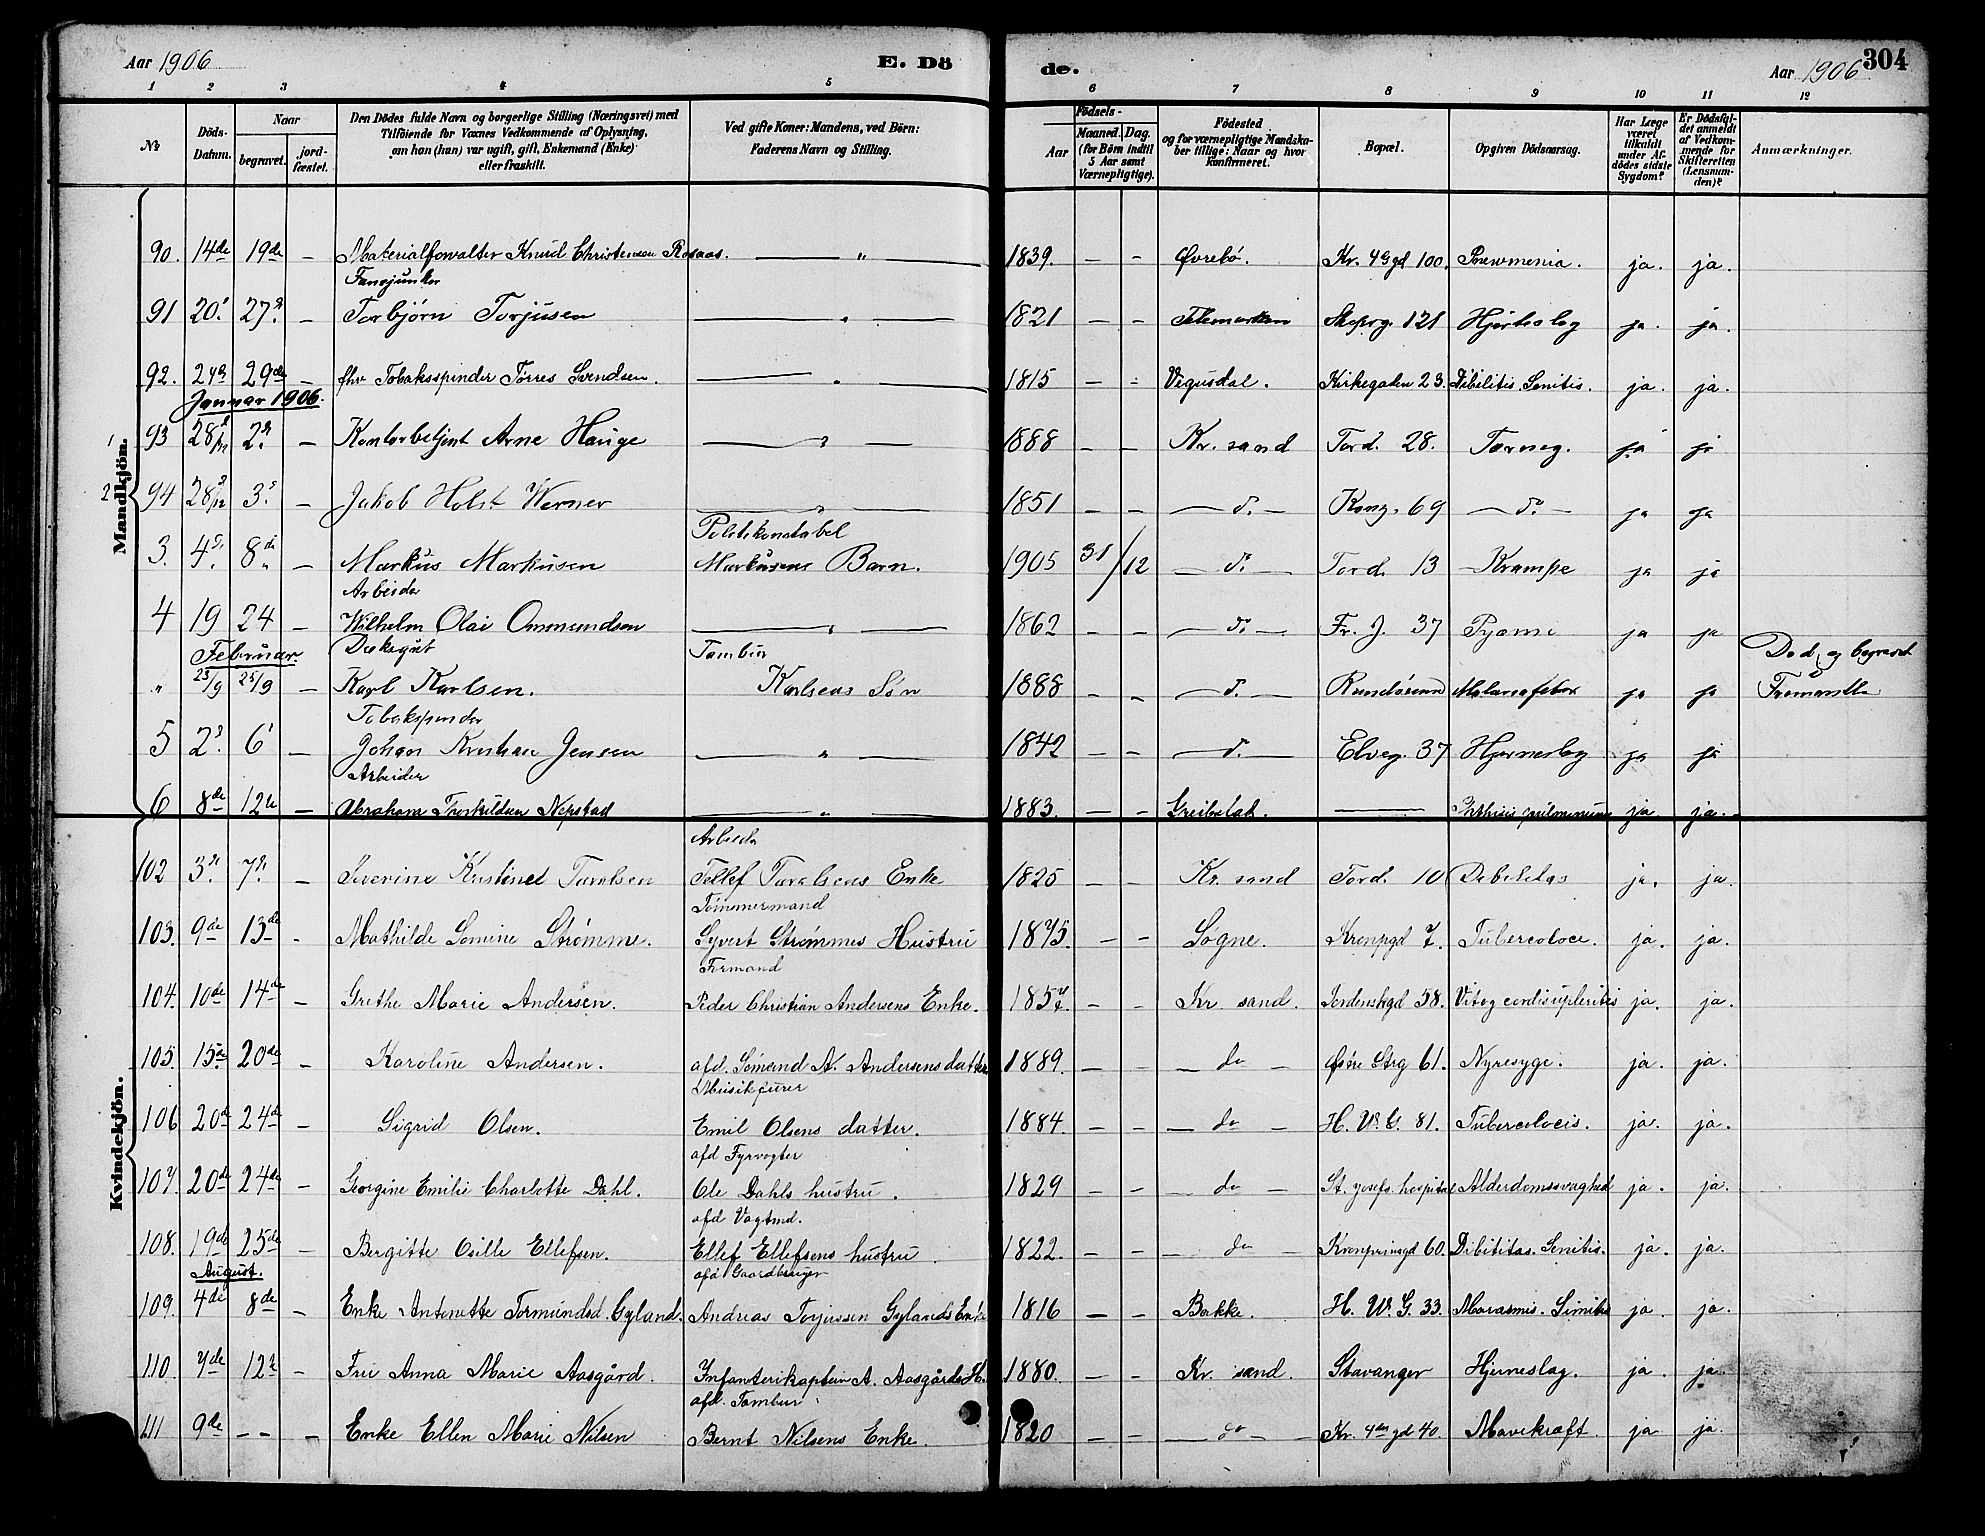 Aar 1906 E. Dö de. Aar 1906 304
1 2 3 4 5 6 7 8 9 10 11 12
No Döds-Datum. Naar begravet. jord-fæstet. Den Dödes fulde Navn og borgerlige Stilling (Næringsvei) med Tilföiende for Voxnes Vedkommende af Oplysning, om han (hun) var ugift, gift, Enkemand (Enke) eller fraskilt. Ved gifte Koner: Mandens, ved Börn: Faderens Navn og Stilling. Födsels- Aar Maaned. Dag. (for Börn indtil 5 Aar samt Værnepligtige). Födested og for værnepligtige Mandskaber tillige: Naar og hvor konfirmeret. Bopæl. Opgiven Dödsaarsag. Har Læge været tilkaldt under Afdödes sidste Sygdom? Er Dödsfaldet anmeldt af Vedkommende for Skifteretten (Lensmanden)? Anmærkninger.
Mandkjön.
90. 14de 19de – Materialforvalter Knud Christensen Rosaas. — „ — 1839. – – Øvrebø. Kr. 4de gd 100. Pnewmenia. ja. ja.
Fanejunker
91 20' 27. – Torbjørn Torjusen — „ — 1821 – – Telemarken 121 Hjerteslag ja. ja.
92. 24 29de – fhv Tobaksspinder Tørres Svendsen. — „ — 1815 – – Vegusdal. Kirkegaten 23. Debilitis. Senitis. ja. ja.
Januar 1906.
1 93 28/12 2. – Kontorbetjent Arne Hauge — „ — 1888 – – Kr. sand Tord. 28. ja ja
2 94 28/12 3. – Jakob Holst Werner — „ — 1851 – – — do — Kong. 69 — do — ja ja
Politikonstabel
3. 4. 8de – Markus Markusen Markusens Barn. 1905 31/12 — do — Tord. 13 Krampe ja ja
Arbeider
4 19 24 – Wilhelm Olai Ommundsen — „ — 1862 – – — do — Fr. J. 37 Pyæmi ja ja
Februar. Dæksgut Tambur Død og begravet
„ 23/9 25/9 – Karl Karlsen. Karlsens Søn 1888 – – — do — Malariafeber ja ja Fremantle
Tobakspinder
5 2. 6' – Johan Kristian Jensen — „ — 1842 – – — do — Elveg. 37 Hjerneslag ja ja
Arbeider
6 8de 12te – Abraham Torkildsen Nepstad — „ — 1883. – – Greibstad. — Phthisis pulmonum ja ja.
Kvindekjön.
Arbeider
102 3. 7. – Severine Kristine Taralsen Tellef Taralsens Enke 1825 – – Kr. sand Tord. 10 Debilitas ja. ja.
Tømmermand
103. 9de 13de – Mathilde Somine Strømme. Syvert Strømmes Hustru 1875. – – Søgne. Kronpgd 7. Tuberculoce. ja. ja.
Formand
104. 10de 14de – Grethe Marie Andersen. Peder Christian Andersens Enke. 1857. – – Kr. sand. Tordenskgd 58. ja. ja.
105. 15de 20de – Karoline Andersen. afd. Sømand N. Andersens datter 1889. – – — do — Østre Strg 61. Nyresyge. ja. ja.
Musikfurer
106 20de 24de – Sigrid Olsen. Emil Olsens datter. 1884. – – — do — H. W. G. 81. Tuberculocis. ja. ja.
afd Fyrvogter
107. 20de 24de – Georgine Emilie Charlotte Dahl. Ole Dahls hustru. 1829 – – — do — St. Josefs hospital Alderdomssvaghed ja. ja.
afd Vagtmd.
108. 19de 25de – Bergitte Osille Ellefsen. Ellef Ellefsens hustru. 1822. – – — do — Kronprinsgd 60. Dibititas. Senitis. ja. ja.
August. afd Gaardbruger
109. 4de 8de – Enke Antonette Tormundsd. Gyland. Andreas Torjussen Gylands Enke 1816 – – Bakke. H. W. G. 33. Marasmis. Sinitis ja. ja.
110. 7de 12te – Fru Anna Marie Aasgård. Infanterikaptein A. Aasgårds H. 1880. – – Kr. sand. Stavanger Hjerneslag. ja. ja.
afd. Tambur
111 9de – – – Enke Ellen Marie Nilsen Bernt Nilsens Enke. 1820 – – — do — Kr. 4de gd 40. Mavekræft. ja ja.